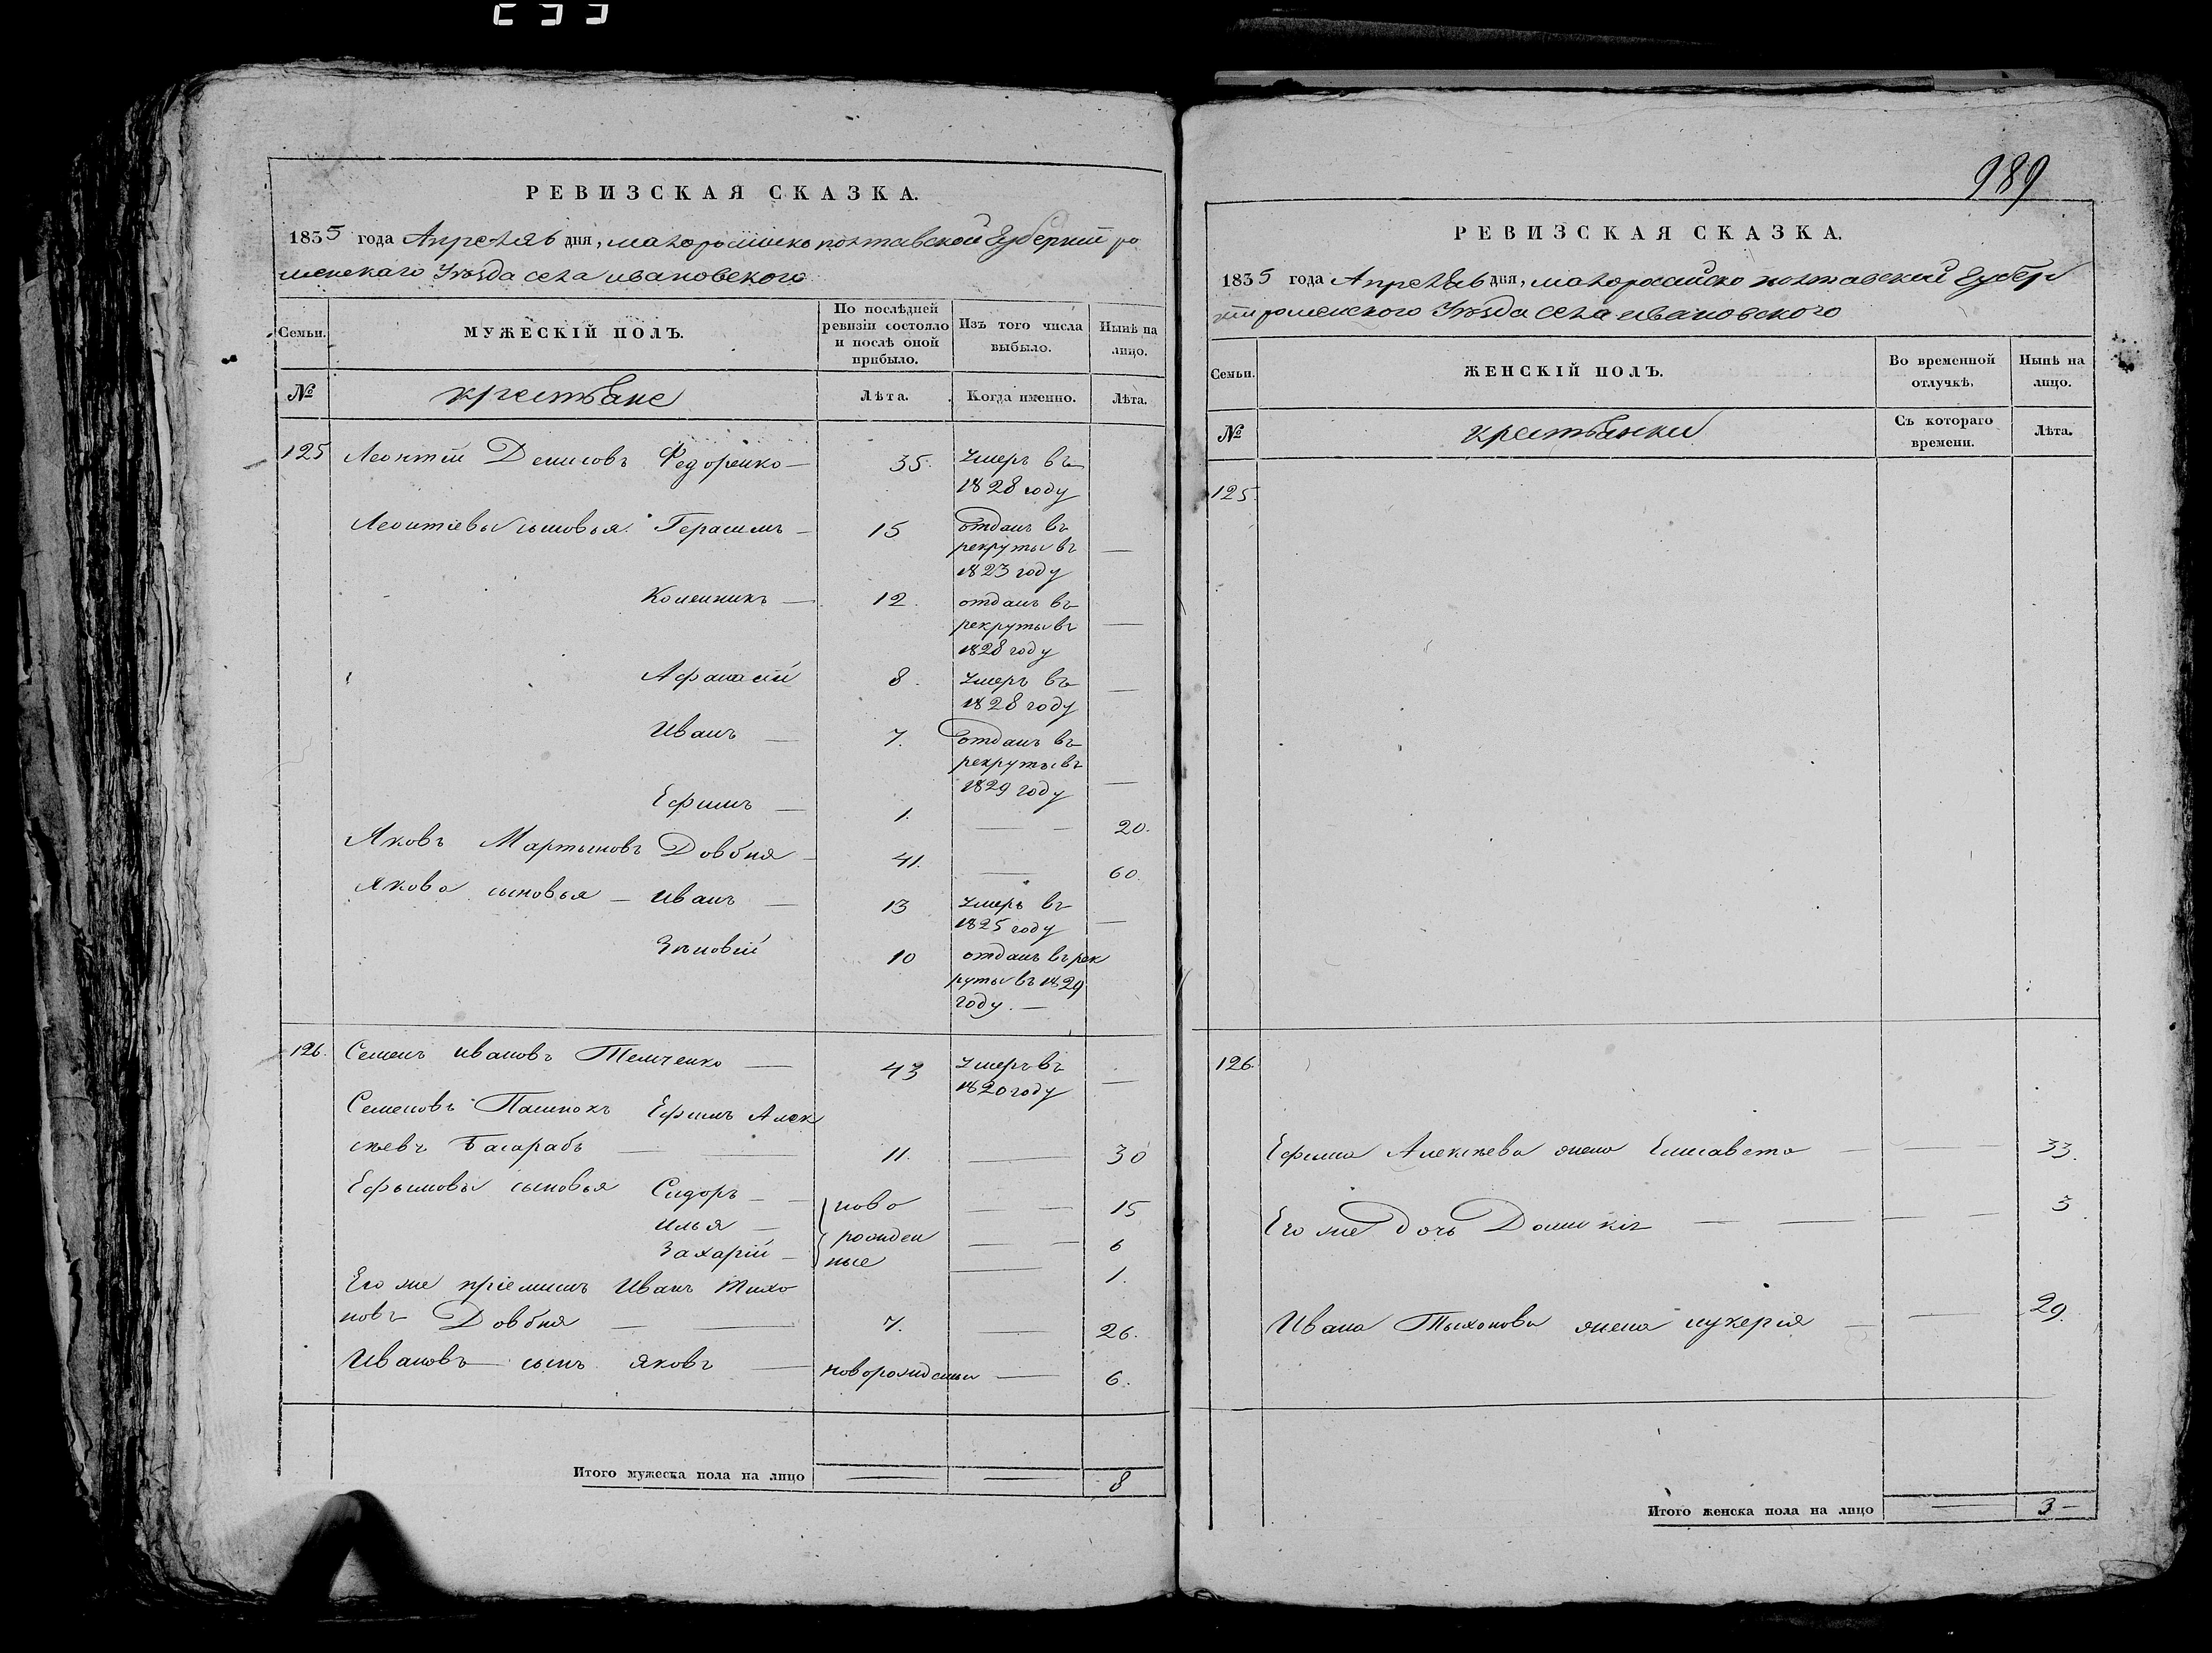 РЕВИЗСКАЯ СКАЗКА.
1835 года Апреля 6 дня, малоросийско полтавской Губернии ро
менскаго Уѣзда села ивановского
Семьи.
МУЖЕСКІЙ ПОЛЪ.
По послѣдней ревизіи состояло и послѣ оной прибыло.
Изъ того числа выбыло.
Нынѣ на лицо.
№
крестьяне
Лѣта.
Когда именно.
Лѣта.
125 Леонтій Денисовъ Федоренко — 35. умеръ въ
1828 году
Леонтіевы сыновья: Герасимъ — 15 отданъ въ
рекруты въ —
1823 году
Коленникъ — 12. отданъ въ
рекруты въ —
1828 году
Афанасій 8. умеръ въ —
1828 году
Иванъ — 7. отданъ въ
рекруты въ
1829 году —
Ефимъ — 1. — — 20.
Яковъ Мартыновъ Довбня — 41. — 60.
Якова сыновья — Иванъ — 13 умеръ въ
1825 году —
Зѣновій 10 отданъ въ рек
руты въ 1829
году. —
126. Семенъ ивановъ Темченко — 43 умеръ въ
1820 году —
Семеновъ Ефимъ Алек
сѣевъ Басарабъ — 11. — 30
Ефымовы сыновья Сидоръ — ново — — 15
илья — рожден — — 6
Захарій — ные — 1.
Его же пріемышъ Иванъ Тихо
новъ Довбня — 7. — 26.
Ивановъ сынъ яковъ — новорожденны — 6.
Итого мужеска пола на лицо — — 8
989
РЕВИЗСКАЯ СКАЗКА.
1835 года Апреля 6 дня, малоросийско полтавский Губер
нии роменского Уѣзда села ивановского
Семьи.
ЖЕНСКІЙ ПОЛЪ.
Во временной отлучкѣ.
Нынѣ на лицо.
№
крестьянки
Съ котораго времени.
Лѣта.
125.
126.
Ефима Алексѣева жена Елисавета — — 33.
Его же дочь Домникія — — — — 3
Ивана Тыхонова жена лукерія — — 29.
Итого женска пола на лицо — 3 —